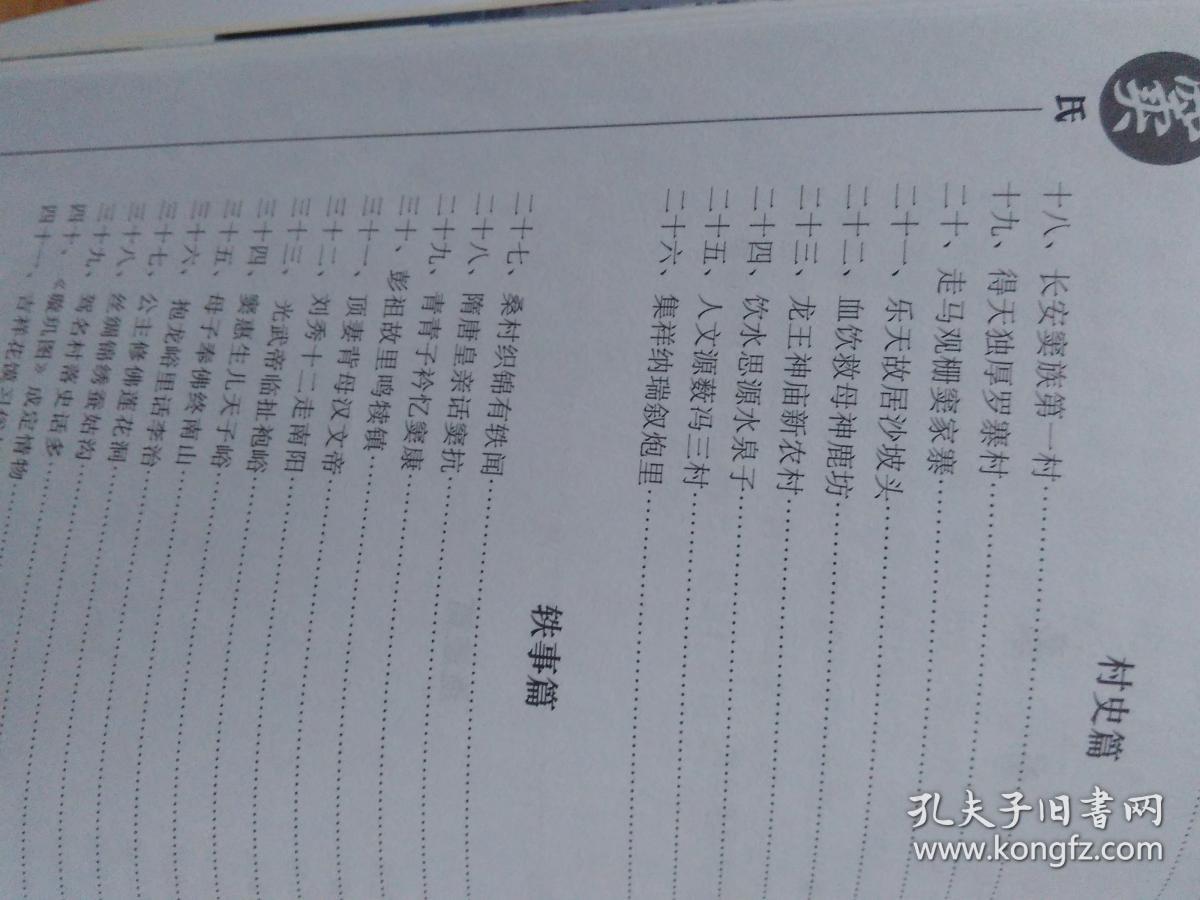 氏
村史篇
十八、长安窦族第一村
十九、得天独厚罗寨村
二十、走马观棚窦家寨
二十一、乐天故居沙坡头
二十二、血饮救母神鹿坊
二十三、龙王神庙新农村
二十四、饮水思源水泉子
二十五、人文源薮冯三村
二十六、集祥纳瑞叙炮里
轶事篇
二十七、桑村织锦有轶闻
二十八、隋唐皇亲话窦抗
二十九、青青子衿忆窦康
三十、彭祖故里鸣犊镇
三十一、顶妻背母汉文帝
三十二、刘秀十二走南阳
三十三、光武帝临扯袍峪
三十四、窦惠生儿天子峪
三十五、母子奉佛终南山
三十六、抱龙峪里话李治
三十七、公主修佛莲花洞
三十八、丝绸锦绣蚕姑沟
三十九、驾名村落史话多
四十、《璇玑图》成定情物
四十一、吉祥花馍
孔夫子旧书网
www.kongfz.com